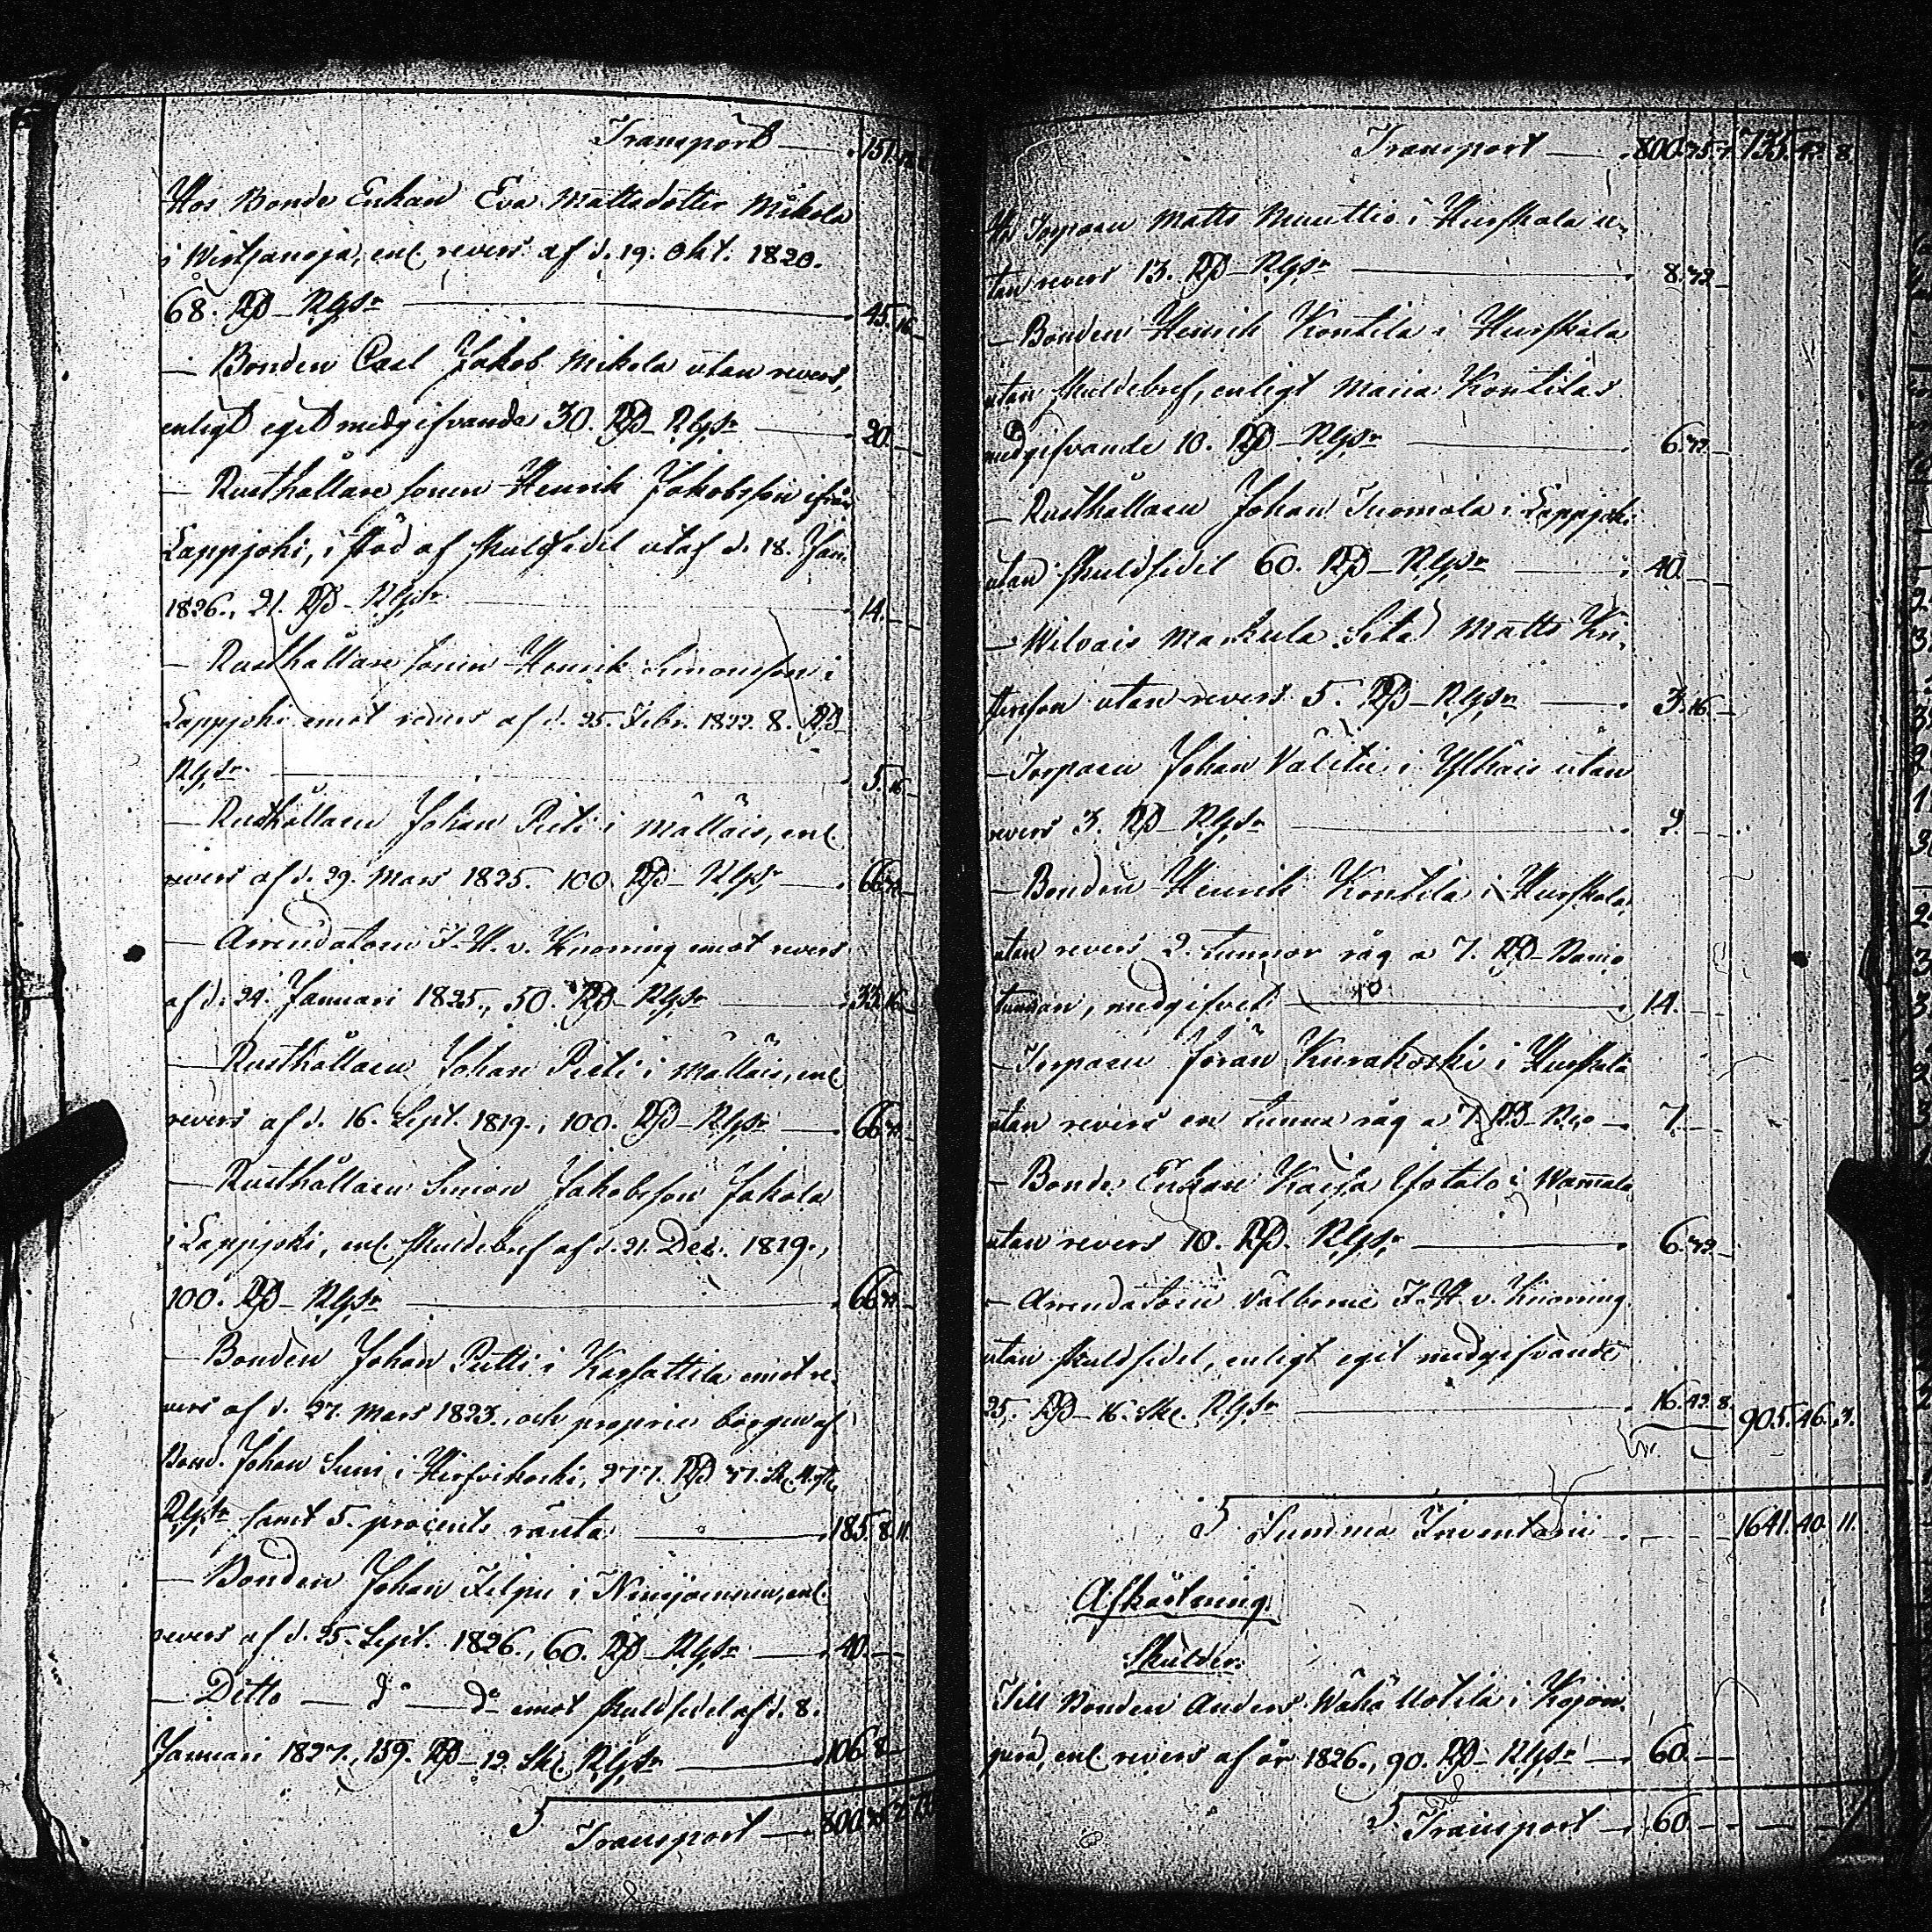 Transport — 151.
Hos Bonde Enkan Eva Mattsdotter Mikola
i Wirtsanoja, enl. revers af d. 19. Okt. 1820.
68. RD Rgsr — 45. 16.
— Bonden Carl Jakob Mikola utan revers,
enligt eget medgifvande 30. RD Rgsr — 20.
— Rusthållare sonen Henrik Jakobsson ifrån
Lappjoki, i stöd af skuldsedel utaf d. 18. Jan.
1826., 21. RD Rgsr — 14.
— Rusthållare sonen Henrik Simonsson i
Lappjoki emot revers af d. 25. Febr. 1822. 8. RD
Rgsr — 5. 16.
— Rusthållaren Johan Pieti i Mälläis, enl.
revers af d. 29. Mars 1825. 100. RD Rgsr — 66.
— Arrendatorn F. H. v. Knorring emot revers
af d. 24. Januari 1825., 50. RD Rgsr — 33. 16.
— Rusthållaren Johan Pieti i Mälläis, enl.
revers af d. 16. Sept. 1819., 100. RD Rgsr — 66.
— Rusthållaren Simon Jakobsson Jakola
i Lappjoki, enl. skuldebref af d. 21. Dec. 1819.,
100. RD Rgsr — 66.
— Bonden Johan Putti i Karhattila emot re-
vers af d. 27. Mars 1823., och proprie borgen af
Bond. Johan Suni i Hirfvikoski, 277. RD 37. Sk.
Rgsr samt 5. procents ränta — 185. 8. 11.
— Bonden Johan Filpu i Niinijoensuu, enl.
revers af d. 25. Sept. 1826., 60. RD Rgsr — 40.
— Ditto — d:o — d:o emot skuldsedel af d. 8.
Januari 1827., 159. RD 12. Sk. Rgsr — 106. 8.
Transport — 800.
Transport — 800. 35. 7. 735. 42. 8.
Hs Torparen Matts Muuttio i Hurskala u-
tan revers 13. RD Rgsr — 8. 32.
— Bonden Henrik Kontila i Hurskala
utan skuldebref, enligt Maria Kontilas
medgifvande 10. RD Rgsr — 6. 32.
— Rusthållaren Johan Tuomola i Lappjoki
utan skuldsedel 60. RD Rgsr — 40.
— Wilvais Markula Matts Kri-
stersson utan revers 5. RD Rgsr — 3. 16.
— Torparen Johan Välitie i Ylläis utan
revers 3. RD Rgsr — 2.
— Bonden Henrik Kontila i Hurskala
utan revers 2. tunnor råg a 7. RD Banco
tunnan, medgifvet — 14.
— Torparen Jöran Kurakoski i Hurskala
utan revers en tunna råg a 7. RD Bco — 7.
— Bonde Enkan Kaisa Isotalo i Wammala
utan revers 10. RD Rgsr — 6. 32.
— Arrendatorn Välborne F. H. v. Knorring
utan skuldsedel, enligt eget medgifvande
25. RD 16. sk. Rgsr — 16. 42. 8. 905. 46. 3.
Summa Inventarii — 1641. 40. 11.
Afkortning
Skulder.
Till Bonden Anders Wähä Uotila i Kojon-
perä, enl. revers af år 1826., 90. RD Rgsr — 60.
Transport — 60.